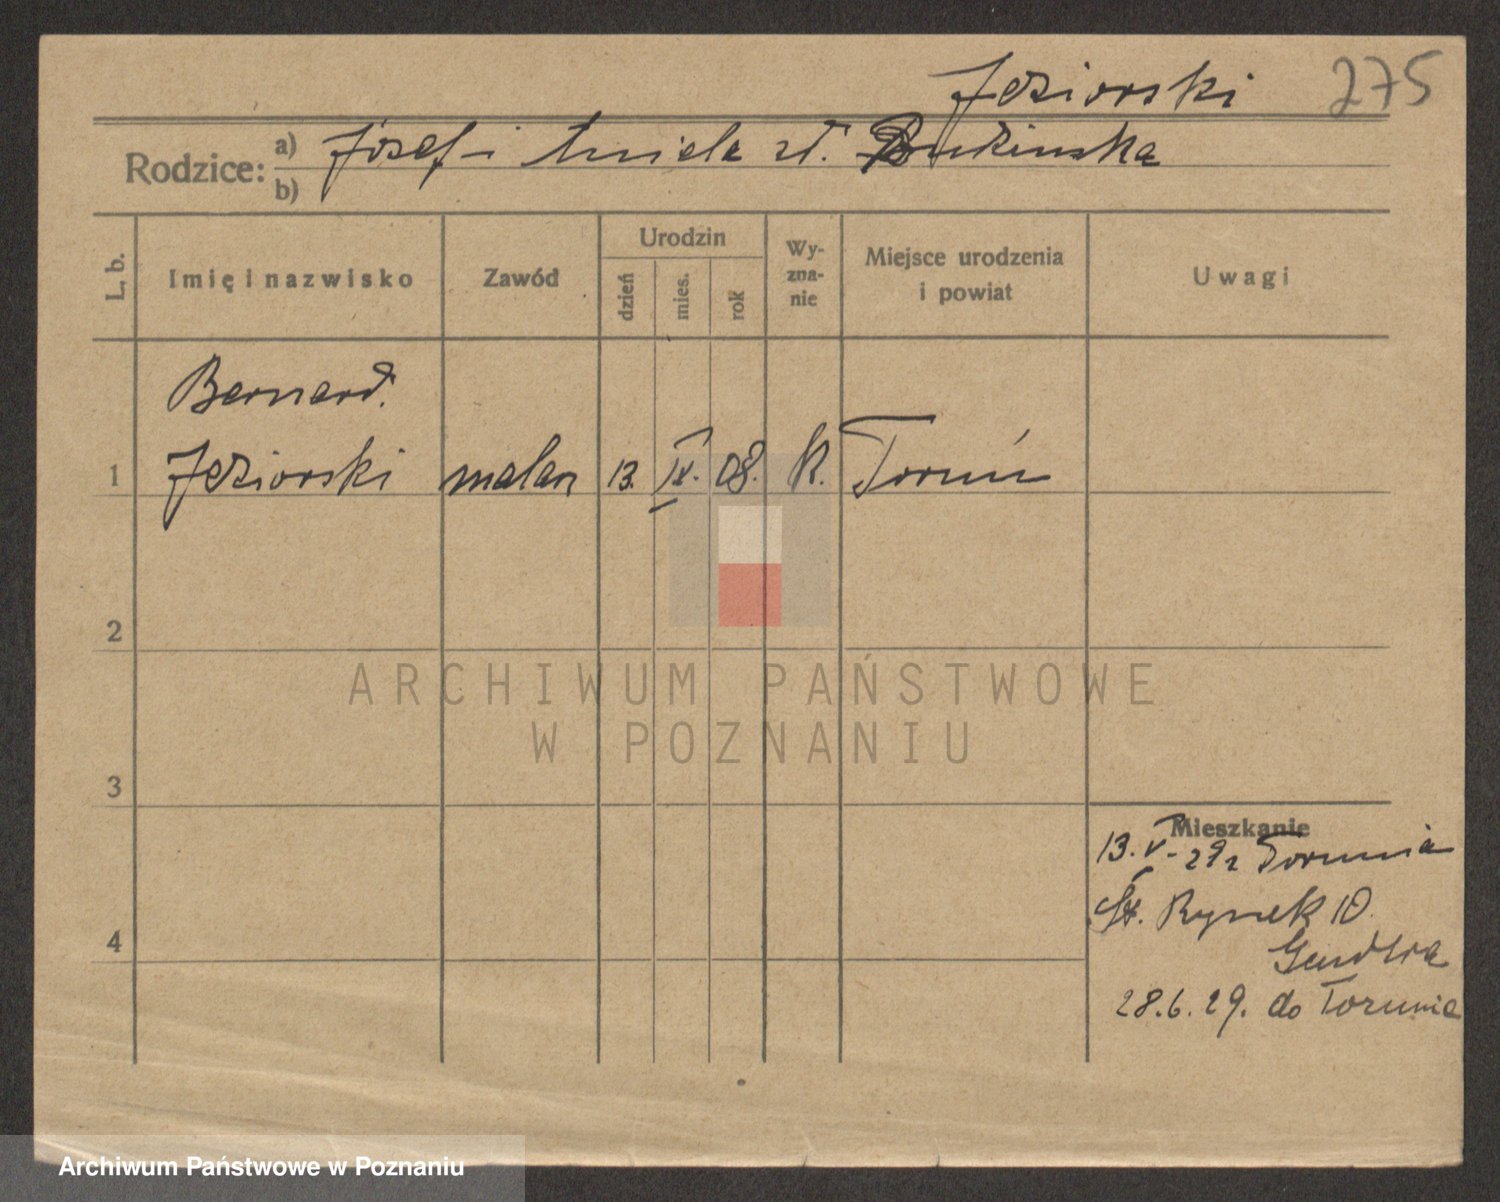 Jeziorski 275
Rodzice: a) Józef i Aniela zd.
b)
L. b. Imię i nazwisko Zawód Urodzin dzień mies. rok Wy-zna-nie Miejsce urodzenia i powiat Uwagi
Bernard.
1 Jeziorski malarz 13. IX. 08. K. Toruń
2
ARCHIWUM PAŃSTWOWE
W POZNANIU
3
Mieszkanie
13. V. 29 z Torunia
St. Rynek 10.
4
28.6.29. do Torunia
Archiwum Państwowe w Poznaniu